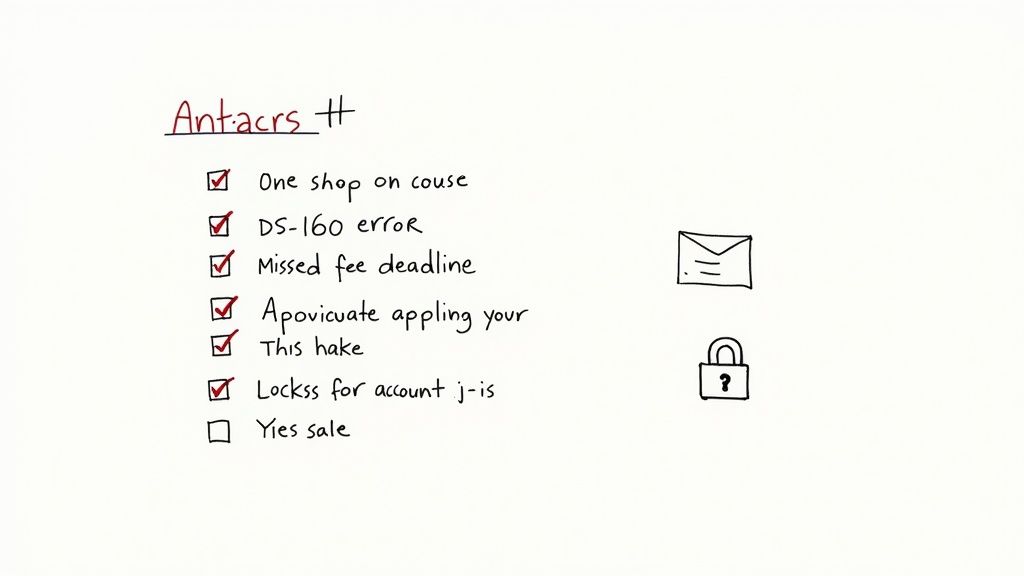 Ant.acrs #
One shop on couse
DS-160 error
Missed fee deadline
Apovicuate appling your
This hake
Lockss for account j-is
Yies sale
?